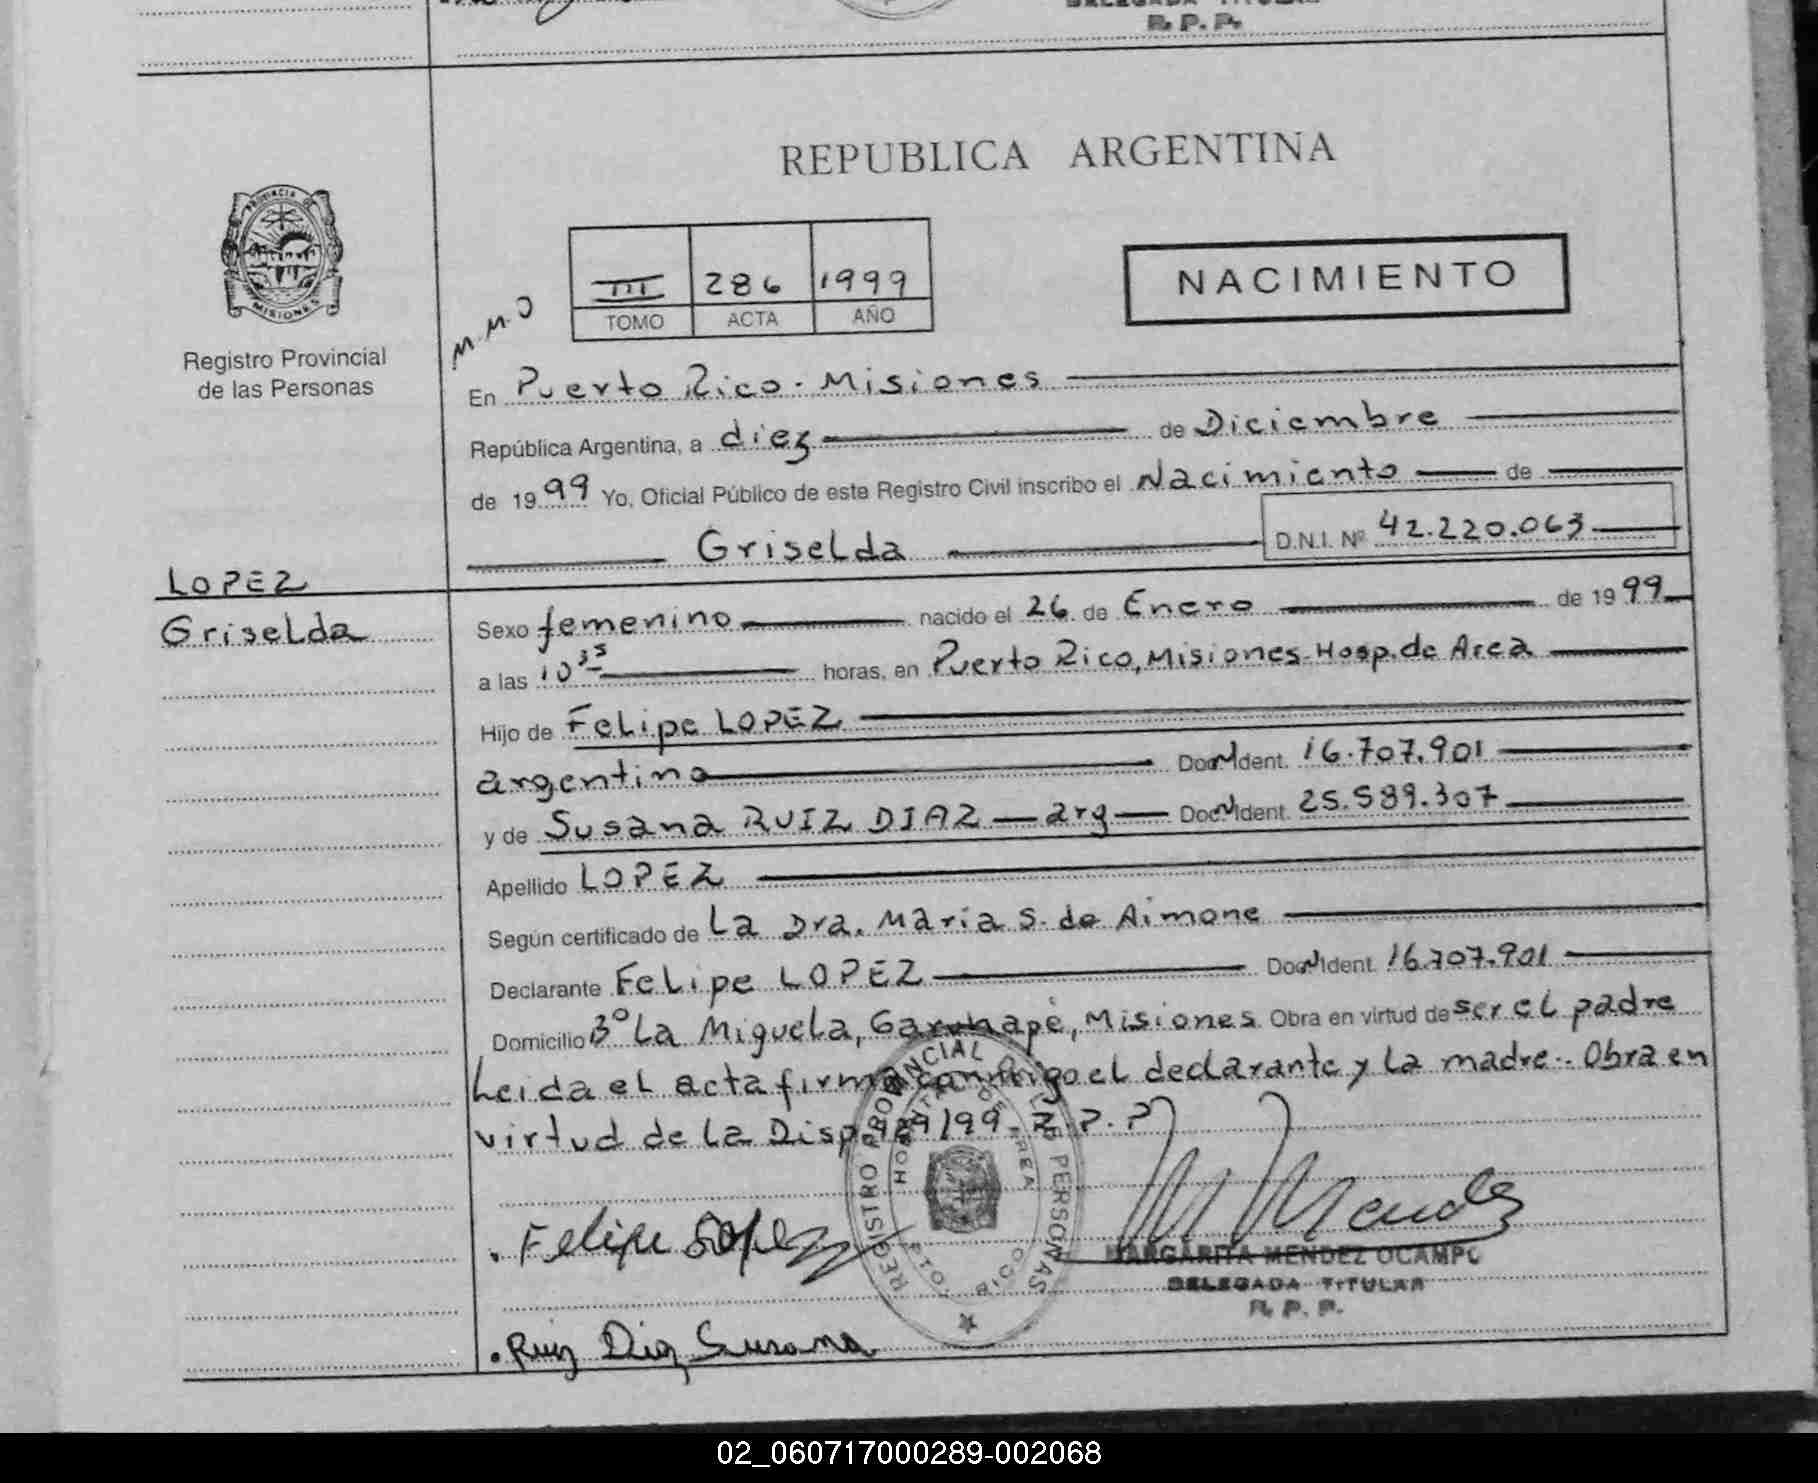 DELEGADA TITULAR
R. P. P.
REPUBLICA ARGENTINA
PROVINCIA DE
MISIONES
Registro Provincial
de las Personas
M.M.O
III 286 1999
TOMO ACTA AÑO
NACIMIENTO
En Puerto Rico - Misiones
República Argentina, a diez de Diciembre
de 1999 Yo, Oficial Público de este Registro Civil inscribo el Nacimiento de
Griselda D.N.I. Nº 42.220.063
LOPEZ
Griselda
Sexo femenino nacido el 26 de Enero de 1999
a las 10 35 horas, en Puerto Rico, Misiones-Hosp. de Area
Hijo de Felipe LOPEZ
argentino Doc. Ident. 16.707.901
y de Susana RUIZ DIAZ — arg — Doc. Ident. 25.589.307
Apellido LOPEZ
Según certificado de La Dra. Maria S. de Aimone
Declarante Felipe LOPEZ Doc. Ident. 16.707.901
Domicilio Bº La Miguela, Garuhapé, Misiones Obra en virtud de ser el padre
Leida el acta firma conmigo el declarante y la madre.- Obra en
virtud de la Disp. 989/99 - R.P.P
REGISTRO PROVINCIAL DE LAS PERSONAS
Felipe Lopez
M Mendez
MARGARITA MENDEZ OCAMPO
DELEGADA TITULAR
R. P. P.
Ruiz Diaz Susana
02_060717000289-002068